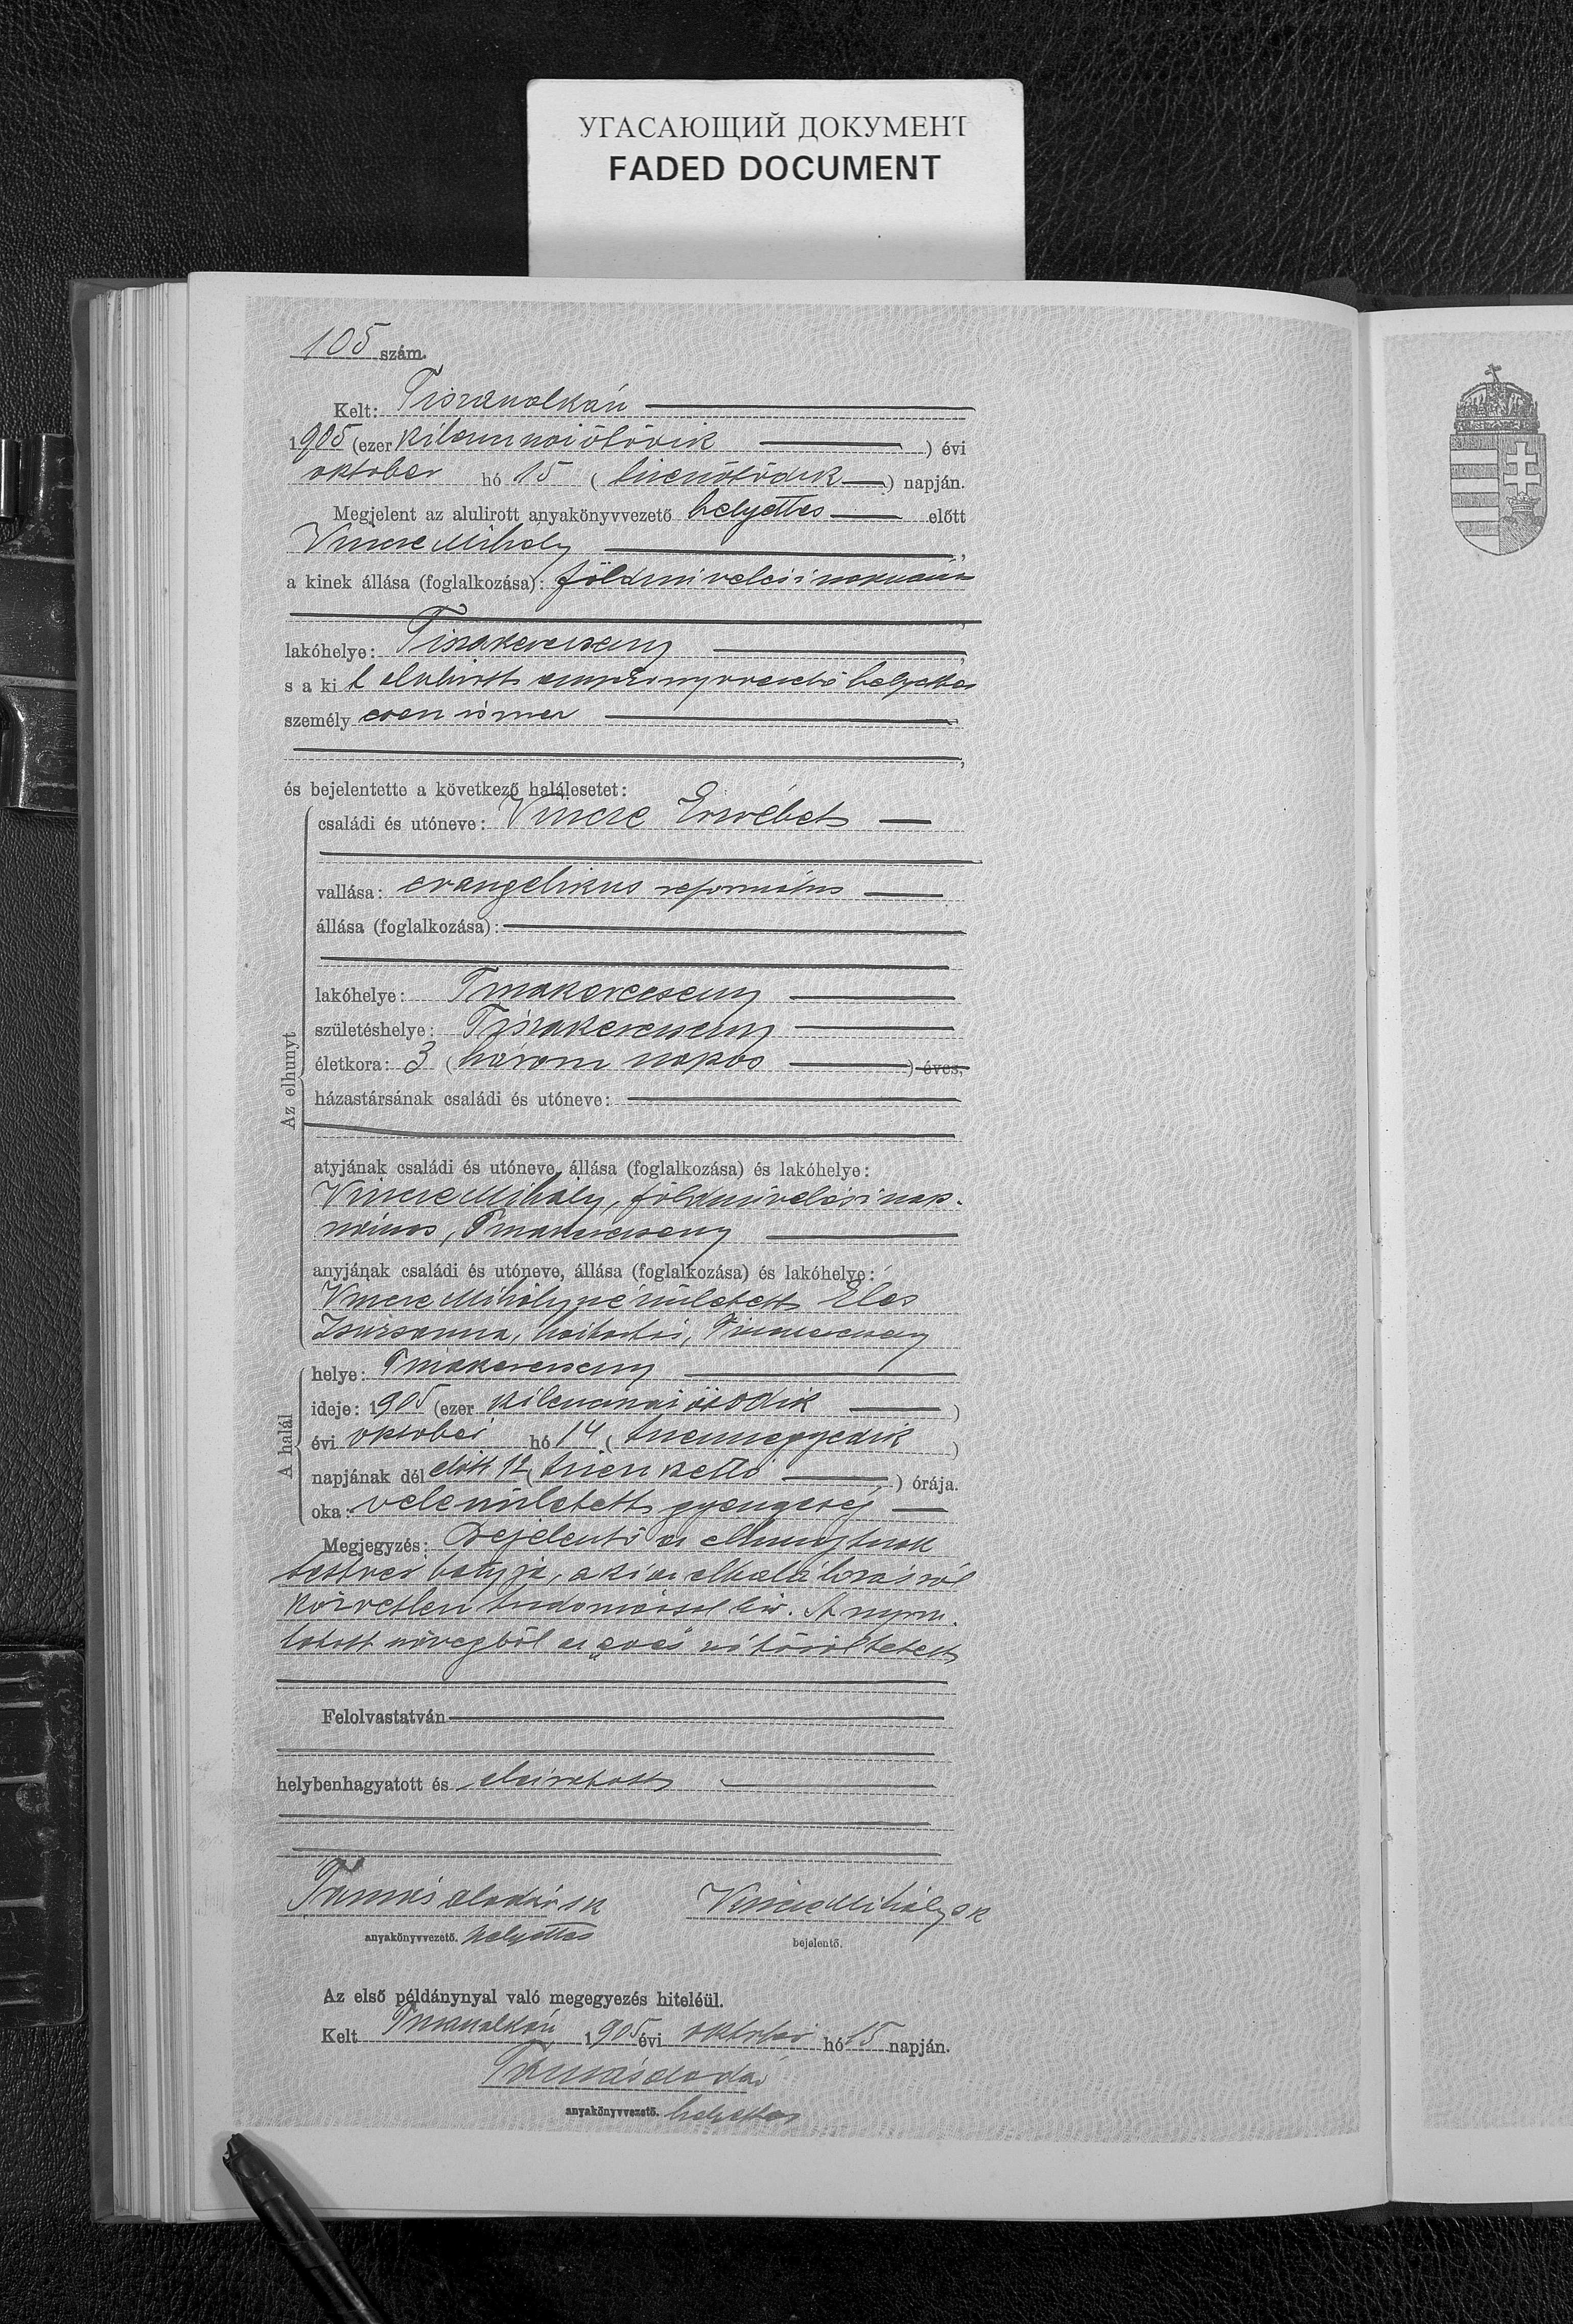 УГАСАЮЩИЙ ДОКУМЕНТ
FADED DOCUMENT
105 szám.
Kelt: Tiszaadalkán
1905 (ezer kilenczszázötödik) évi
október hó 15 (tizenötödik) napján.
Megjelent az alulirott anyakönyvvezető helyettes előtt
Vincze Mihály,
a kinek állása (foglalkozása): földmivelési napszámos
lakóhelye: Tiszakerecseny,
s a ki t alulirott anyakönyvvezető helyettes
személyesen ismer
,
és bejelentette a következő halálesetet:
Az elhunyt
családi és utóneve: Vincze Erzsébet
vallása: evangelikus református
állása (foglalkozása):
lakóhelye: Tiszakerecseny
születéshelye: Tiszakerecseny
életkora: 3 (három napos) éves,
házastársának családi és utóneve:
atyjának családi és utóneve, állása (foglalkozása) és lakóhelye:
Vincze Mihály, földmivelési nap-
számos, Tiszakerecseny
anyjának családi és utóneve, állása (foglalkozása) és lakóhelye:
Vincze Mihályné született Éles
Zsuzsanna, háztartás, Tiszakerecseny
A halál
helye: Tiszakerecseny
ideje: 1905 (ezer kilenczszázötödik)
évi október hó 14 (tizennegyedik)
napjának dél előtt 12 (tizenkettő) órája.
oka: veleszületett gyengeség
Megjegyzés: Bejelentő az elhunytnak
testvér bátyja, a ki az elhalálozásról
közvetlen tudomással bír. A nyom-
tatott szövegből az „éves" szó töröltetett
Felolvastatván
helybenhagyatott és aláiratott
Tamás Aladár sk
Vincze Mihály sk
anyakönyvvezető. helyettes
bejelentő.
Az első példánynyal való megegyezés hiteléül.
Kelt 1905 évi október hó 15 napján.
Tamás Aladár
anyakönyvvezető. helyettes